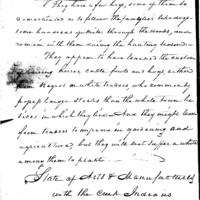 They have a few hogs, some of them
so as to follow the families two days
some hundreds of miles through the woods, and
remain with them during the hunting season.
They appear to have learned the custom
of raising horses, cattle fowls and hogs either
from Negros or white traders who commonly
possess larger stocks than the whole town be
sides in which they live. And they might learn
from traders to improve in gardening and
agriculture, but they will not suffer a white
among them to plant.
State of Arts & Manufactures
with the Creek Indians